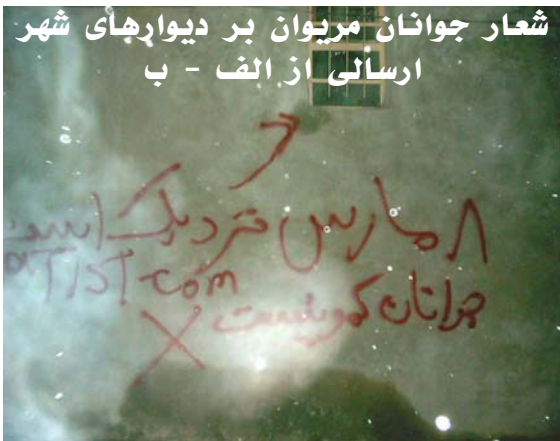 شعار جوانان مریوان بر دیوارهای شهر
ارسالی از الف - ب
۸ مارس نزدیک است
جوانان کمونیست